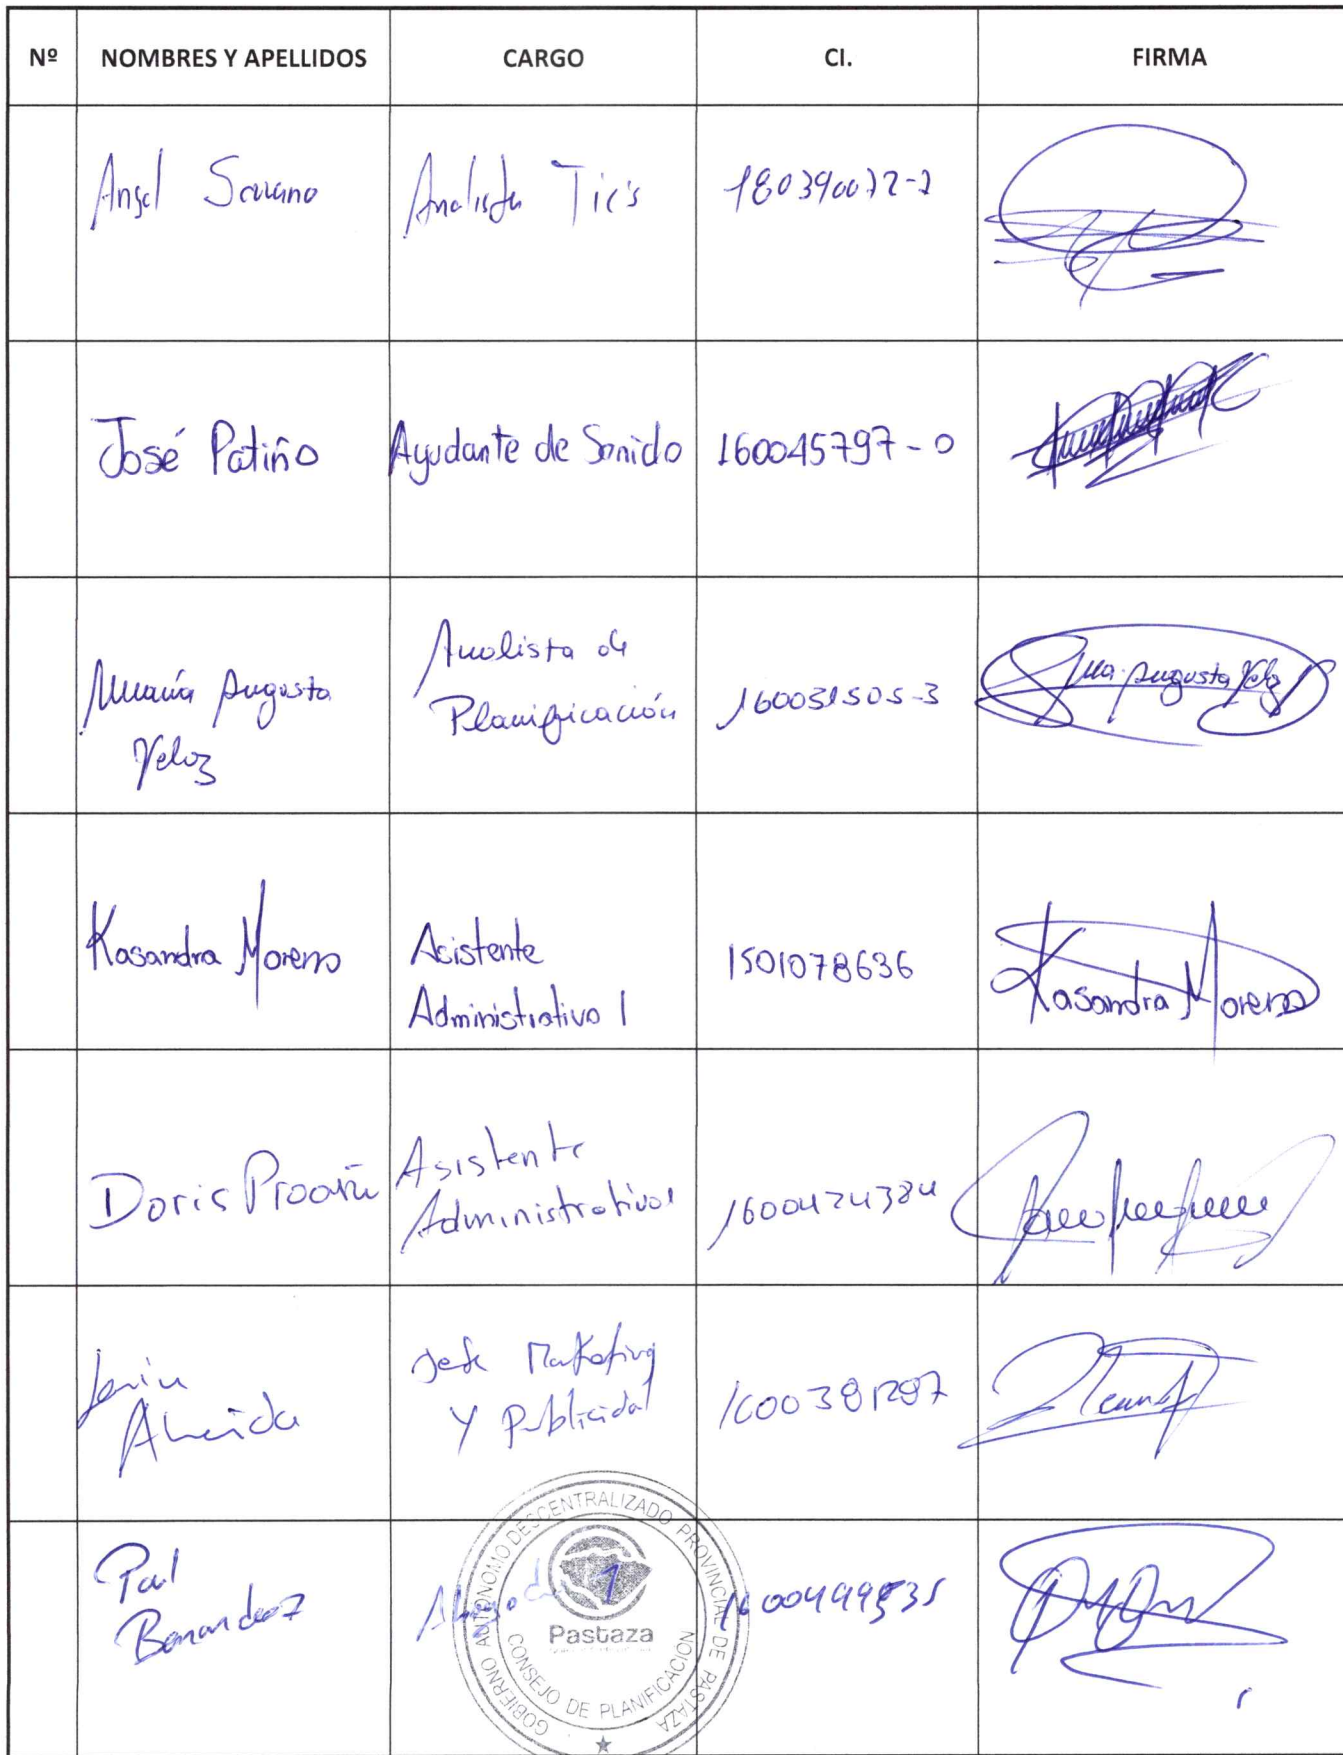 Nº NOMBRES Y APELLIDOS CARGO CI. FIRMA
Angel Serrano Analista Tic's
José Patiño Ayudante de Sonido 160045797-0
María Augusta Analista de
Veloz Planificación 160031505-3 Ma. Augusta Veloz
Kasandra Moreno Asistente 1501078636 Kasandra Moreno
Administrativo 1
Doris Proaño Asistente
Administrativo 1 1600424384
Almeida Jefe Marketing
y Publicidad
Paul Abogado 1
GOBIERNO AUTÓNOMO DESCENTRALIZADO PROVINCIAL DE PASTAZA
Pastaza
CONSEJO DE PLANIFICACIÓN